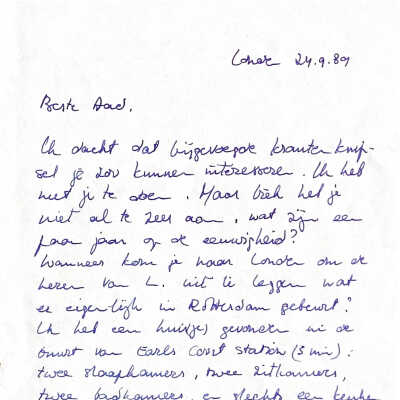 Londen 24.9.89
Beste Aad,
Ik dacht dat bijgevoegde krantenknip-
sel je zou kunnen interesseren. Ik heb
met je te doen. Maar trek het je
niet al te zeer aan, wat zijn een
paar jaar op de eeuwigheid?
Wanneer kom je naar Londen om de
heren van L. uit te leggen wat
er eigenlijk in Rotterdam gebeurt?
Ik heb een huis(je) gevonden in de
buurt van Earls Court Station (5 min):
twee slaapkamers, twee zitkamers,
twee badkamers, en slechts een keuken